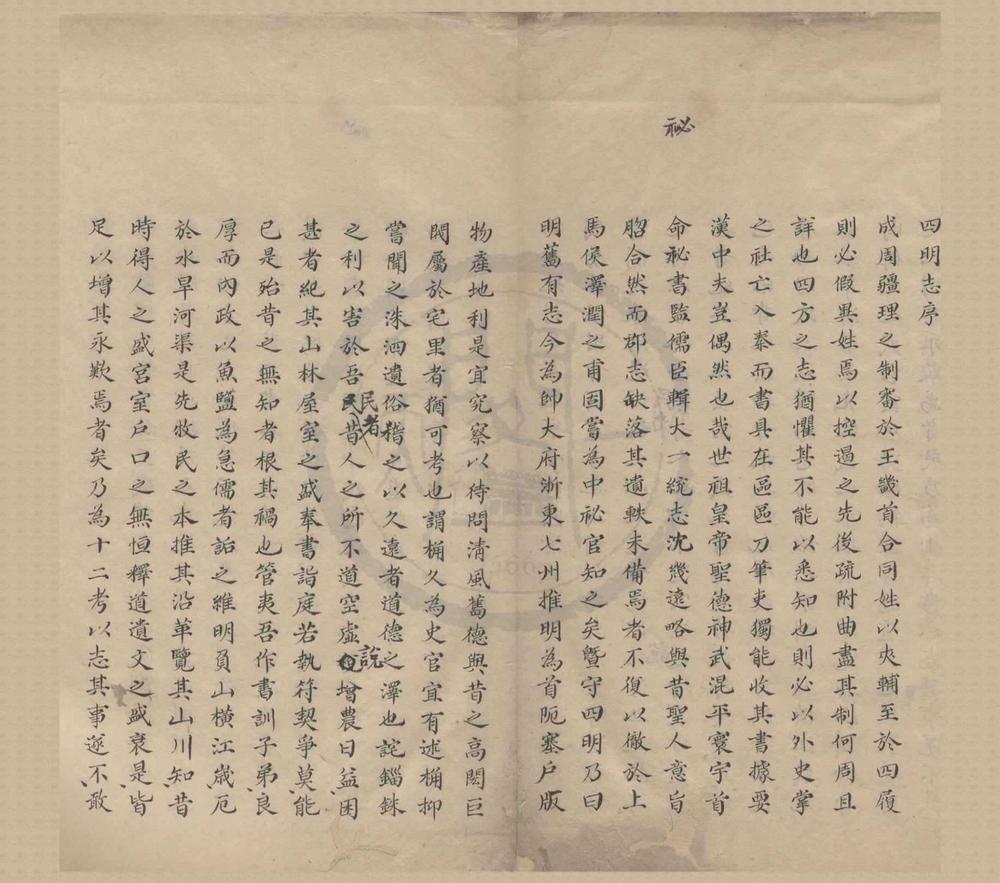 四明志序
成周疆理之制審於王畿首合同姓以夾輔至於四履
則必假異姓焉以控遏之先後疏附曲盡其制何周且
詳也四方之志猶懼其不能以悉知也則必以外史掌
之社亡火入秦而書具在區區刀筆吏獨能收其書據要
漢中夫豈偶然也哉世祖皇帝聖德神武混平寰宇首
命祕書監儒臣輯大一統志沈幾遠略與昔聖人意旨
脗合然而郡志缺落其遺軼未備焉者不復以徹於上
馬侯澤潤之甫固嘗為中祕官知之矣暨守四明乃曰
明舊有志今為帥大府浙東七州推明為首阨塞戶版
物產地利是宜究察以待問清風舊德與昔之高閎巨
閥屬於宅里者猶可考也謂桷久為史官宜有述桷抑
嘗聞之洙泗遺俗稽之以久遠者道德之澤也詫錙銖
之利以害於吾民昔人之所不道空虛增農日益困
甚者紀其山林屋室之盛奉書詣庭若執符契爭莫能
已是殆昔之無知者根其禍也管夷吾作書訓子弟良
厚而內政以魚鹽為急儒者詬之維明負山橫江歲厄
於水旱河渠是先牧民之本推其沿革覽其山川知昔
時得人之盛宮室戶口之無恒釋道遺文之盛衰是皆
足以增其永歎焉者矣乃為十二考以志其事遂不敢
祕
民者
說